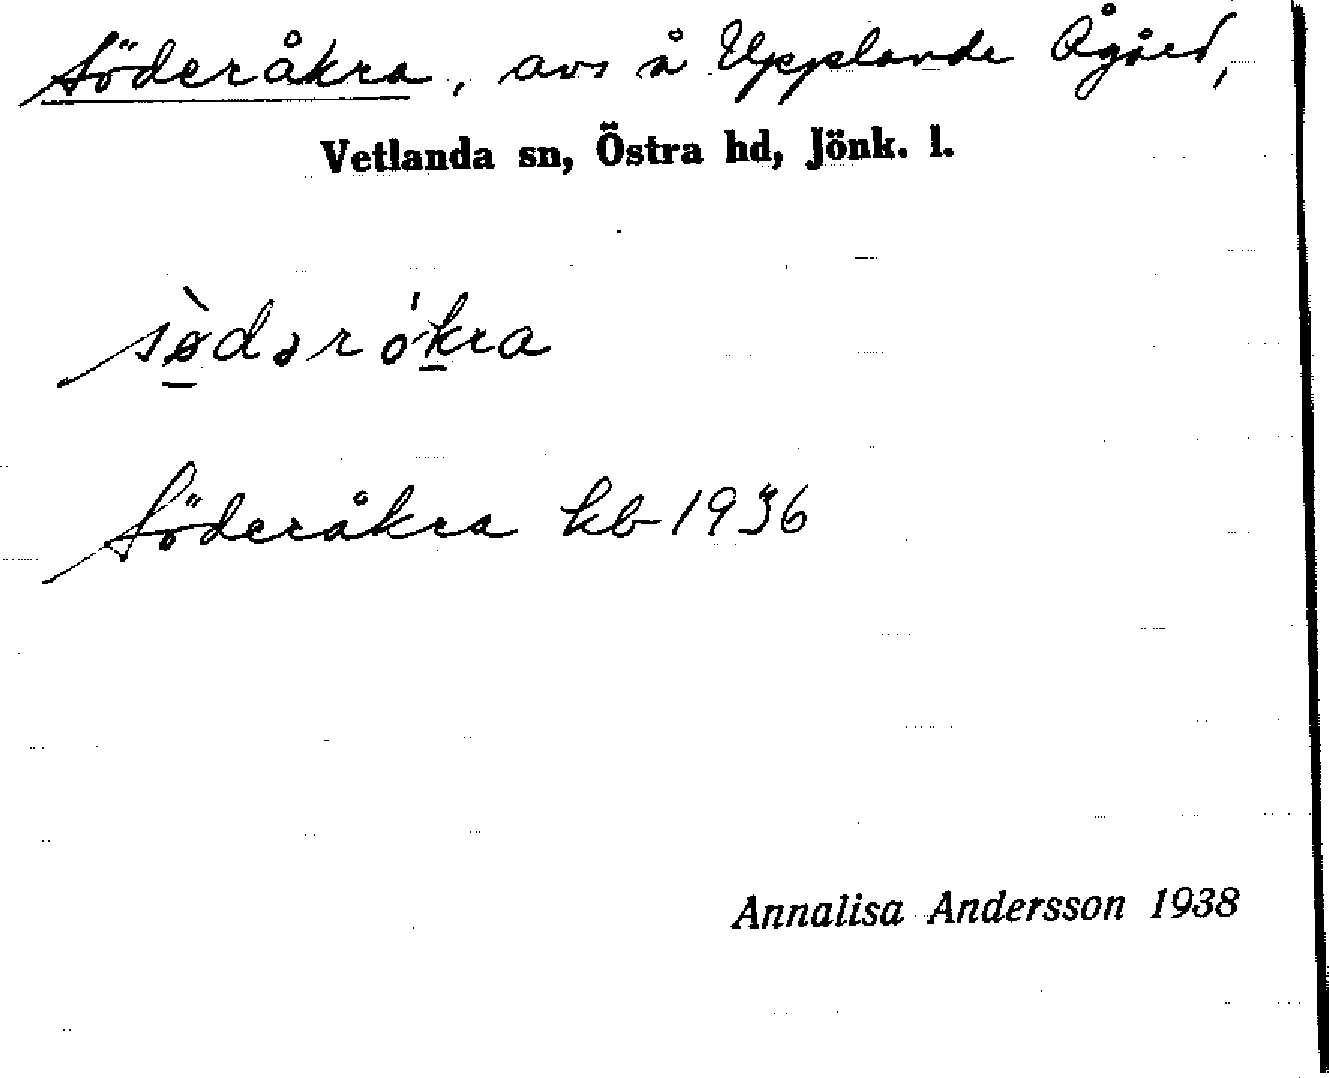 Söderåkra, avs å Upplanda Ågård,
Vetlanda sn, Östra hd, Jönk. l.
sø̀dərókra
Söderåkra kb 1936
Annalisa Andersson 1938